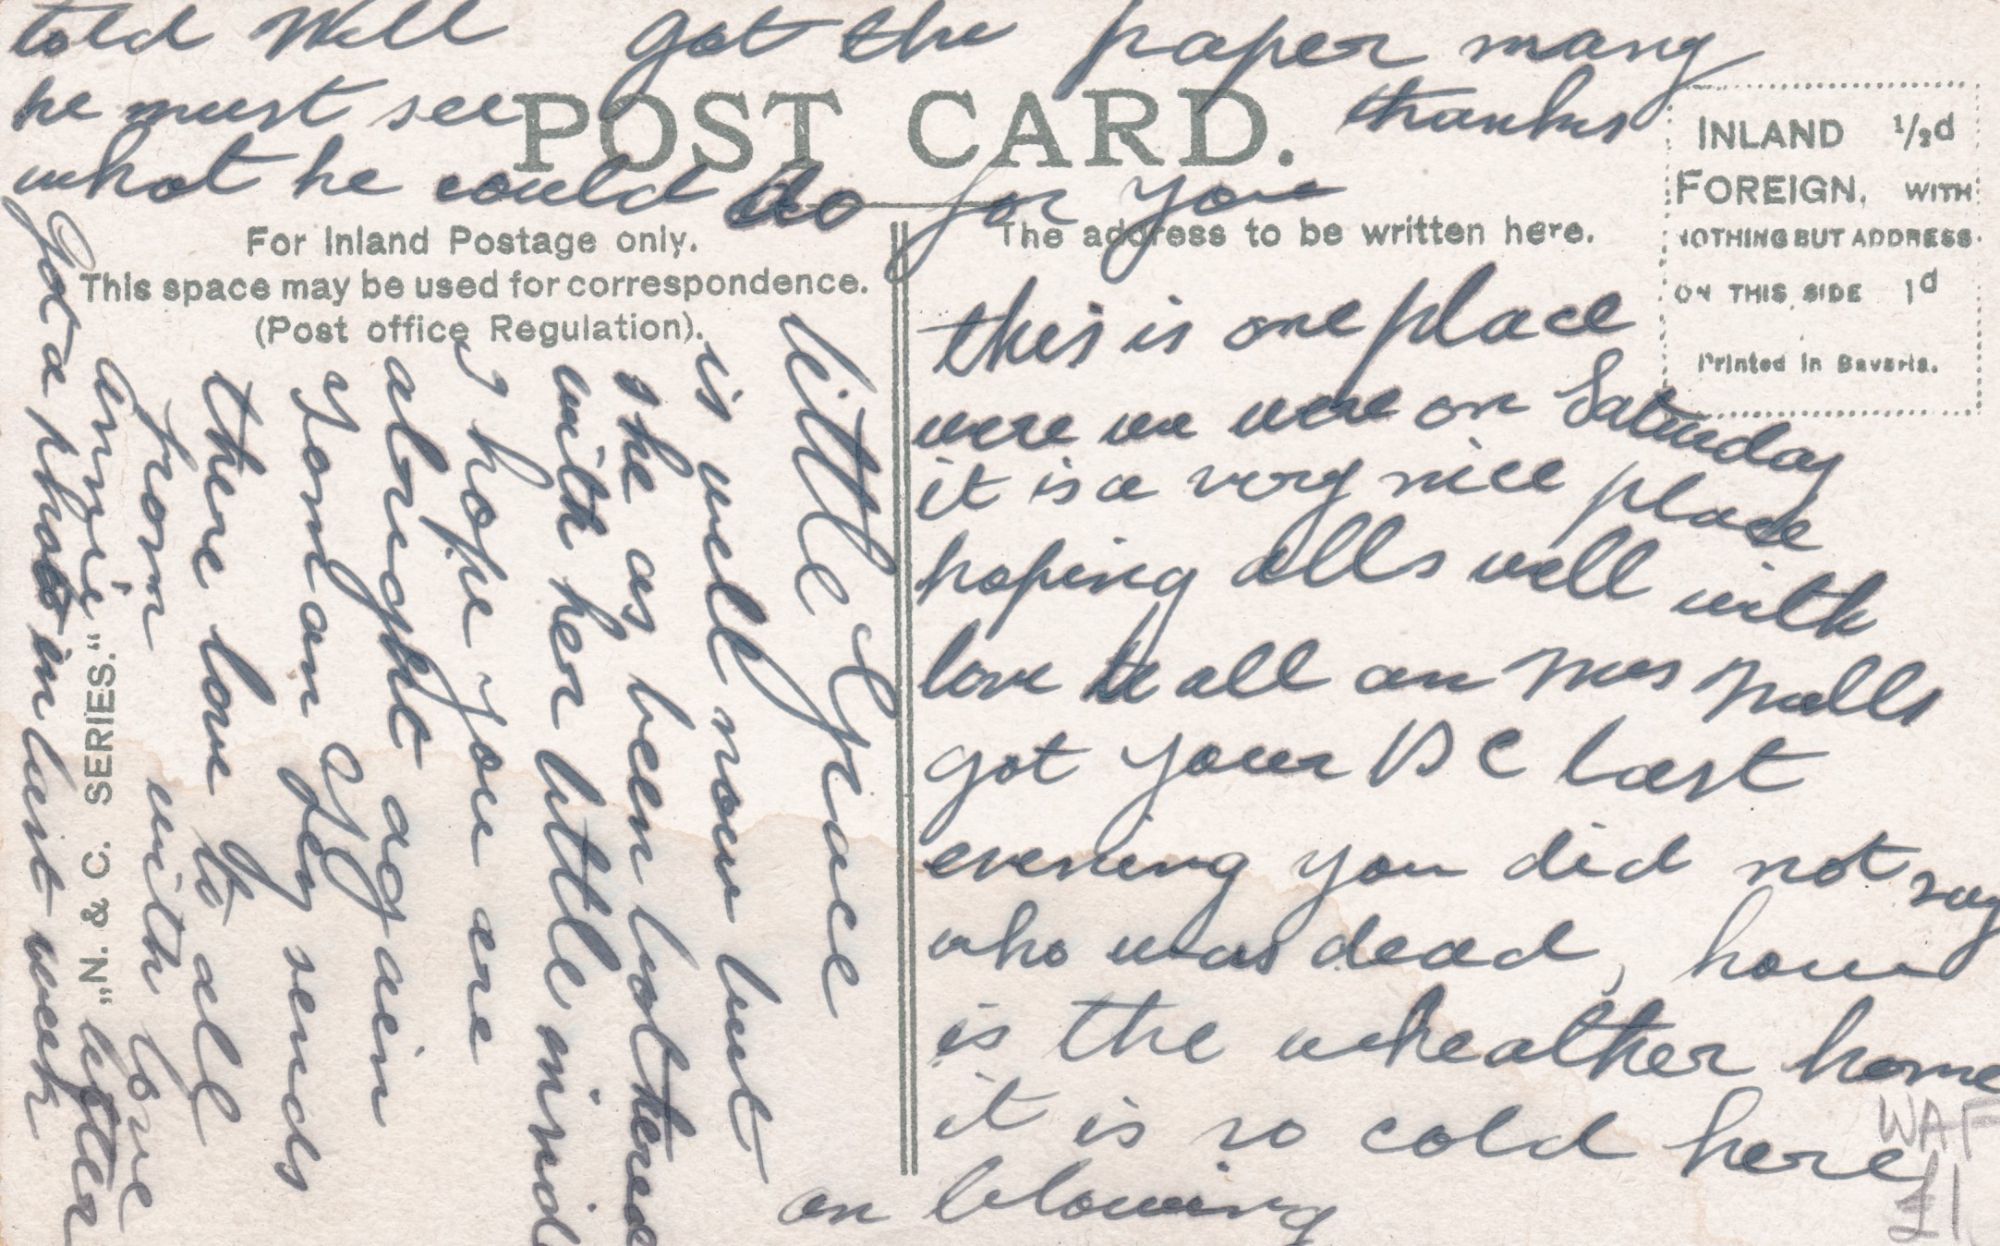 told Will got the paper many
he must see thanks
what he could do for you
POST CARD.
For Inland Postage only.
This space may be used for correspondence.
(Post office Regulation).
The address to be written here.
INLAND 1/2d
FOREIGN. WITH
NOTHING BUT ADDRESS
ON THIS SIDE 1d
Printed in Bavaria.
this is one place
were we were on Saturday
it is a very nice place
hoping alls well with
love to all an Mrs Mills
got your PC last
evening you did not say
who was dead, how
is the wheather home
it is so cold here
an blowing
little Grace
is well now but
she as been bothered
with her little mind
I hope you are
alright again
Tom an Gy sends
there love to all
from with love
annie
Got a photo in last week
letter
„N. & C. SERIES.“
WAF
£1